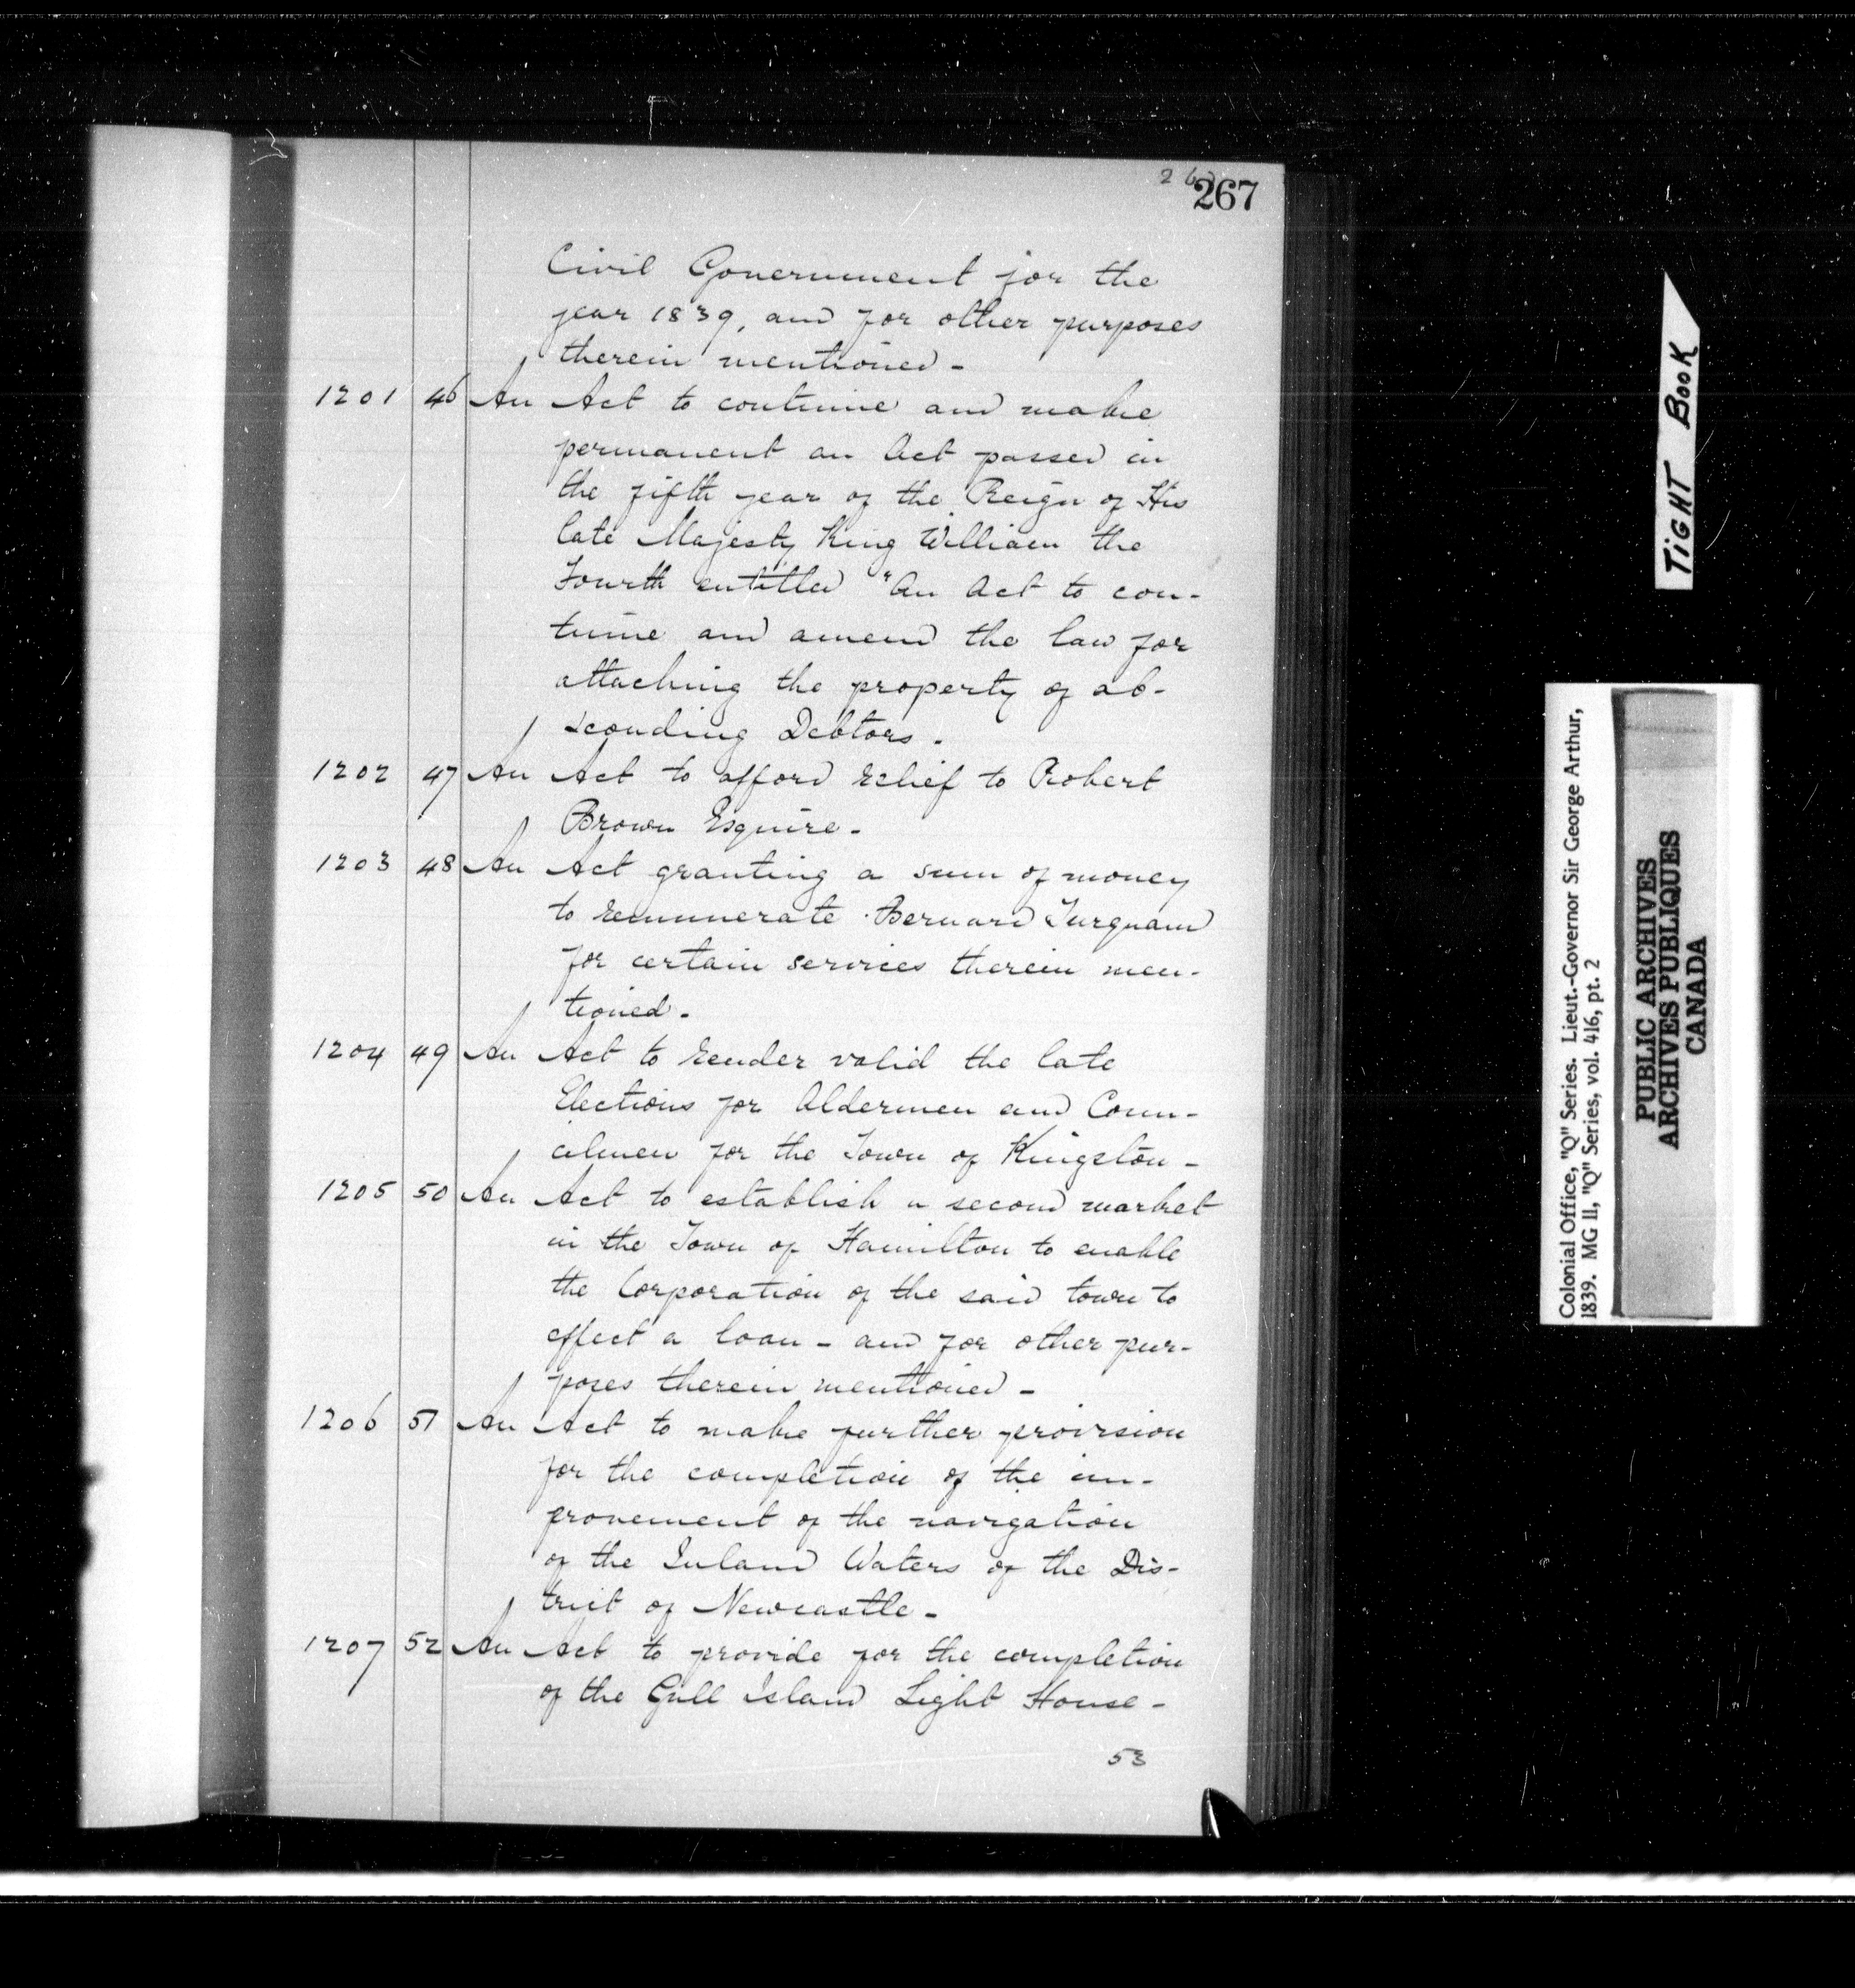 267
Civil Government for the
year 1839, and for other purposes
therein mentioned -
1201 46 An Act to continue and make
permanent an Act passed in
the fifth year of the Reign of His
late Majesty King William the
Fourth entitled "An Act to con-
tinue and amend the law for
attaching the property of ab-
sconding Debtors.
1202 47 An Act to afford relief to Robert
Brown Esquire -
1203 48 An Act granting a sum of money
to remunerate Bernard Turquand
for certain services therein men-
tioned.
1204 49 An Act to render valid the late
Elections for Aldermen and Coun-
cilmen for the Town of Kingston -
1205 50 An Act to establish a second market
in the Town of Hamilton to enable
the Corporation of the said town to
effect a loan - and for other pur-
poses therein mentioned -
1206 51 An Act to make further provision
for the completion of the im-
provement of the navigation
of the Inland Waters of the Dis-
trict of Newcastle -
1207 52 An Act to provide for the completion
of the Gull Island Light House -
53
TIGHT BOOK
Colonial Office, "Q" Series. Lieut.-Governor Sir George Arthur,
1839. MG 11, "Q" Series, vol. 416, pt. 2
PUBLIC ARCHIVES
ARCHIVES PUBLIQUES
CANADA